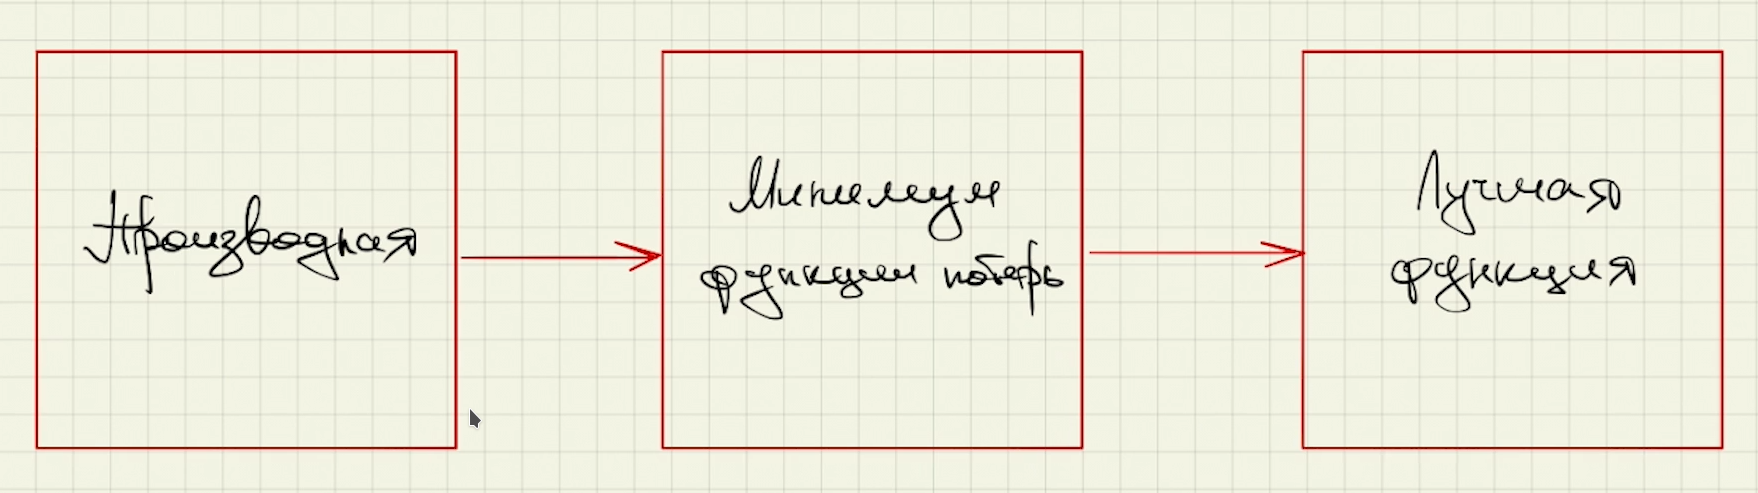 Производная
Минимум
функции потерь
Лучшая
функция